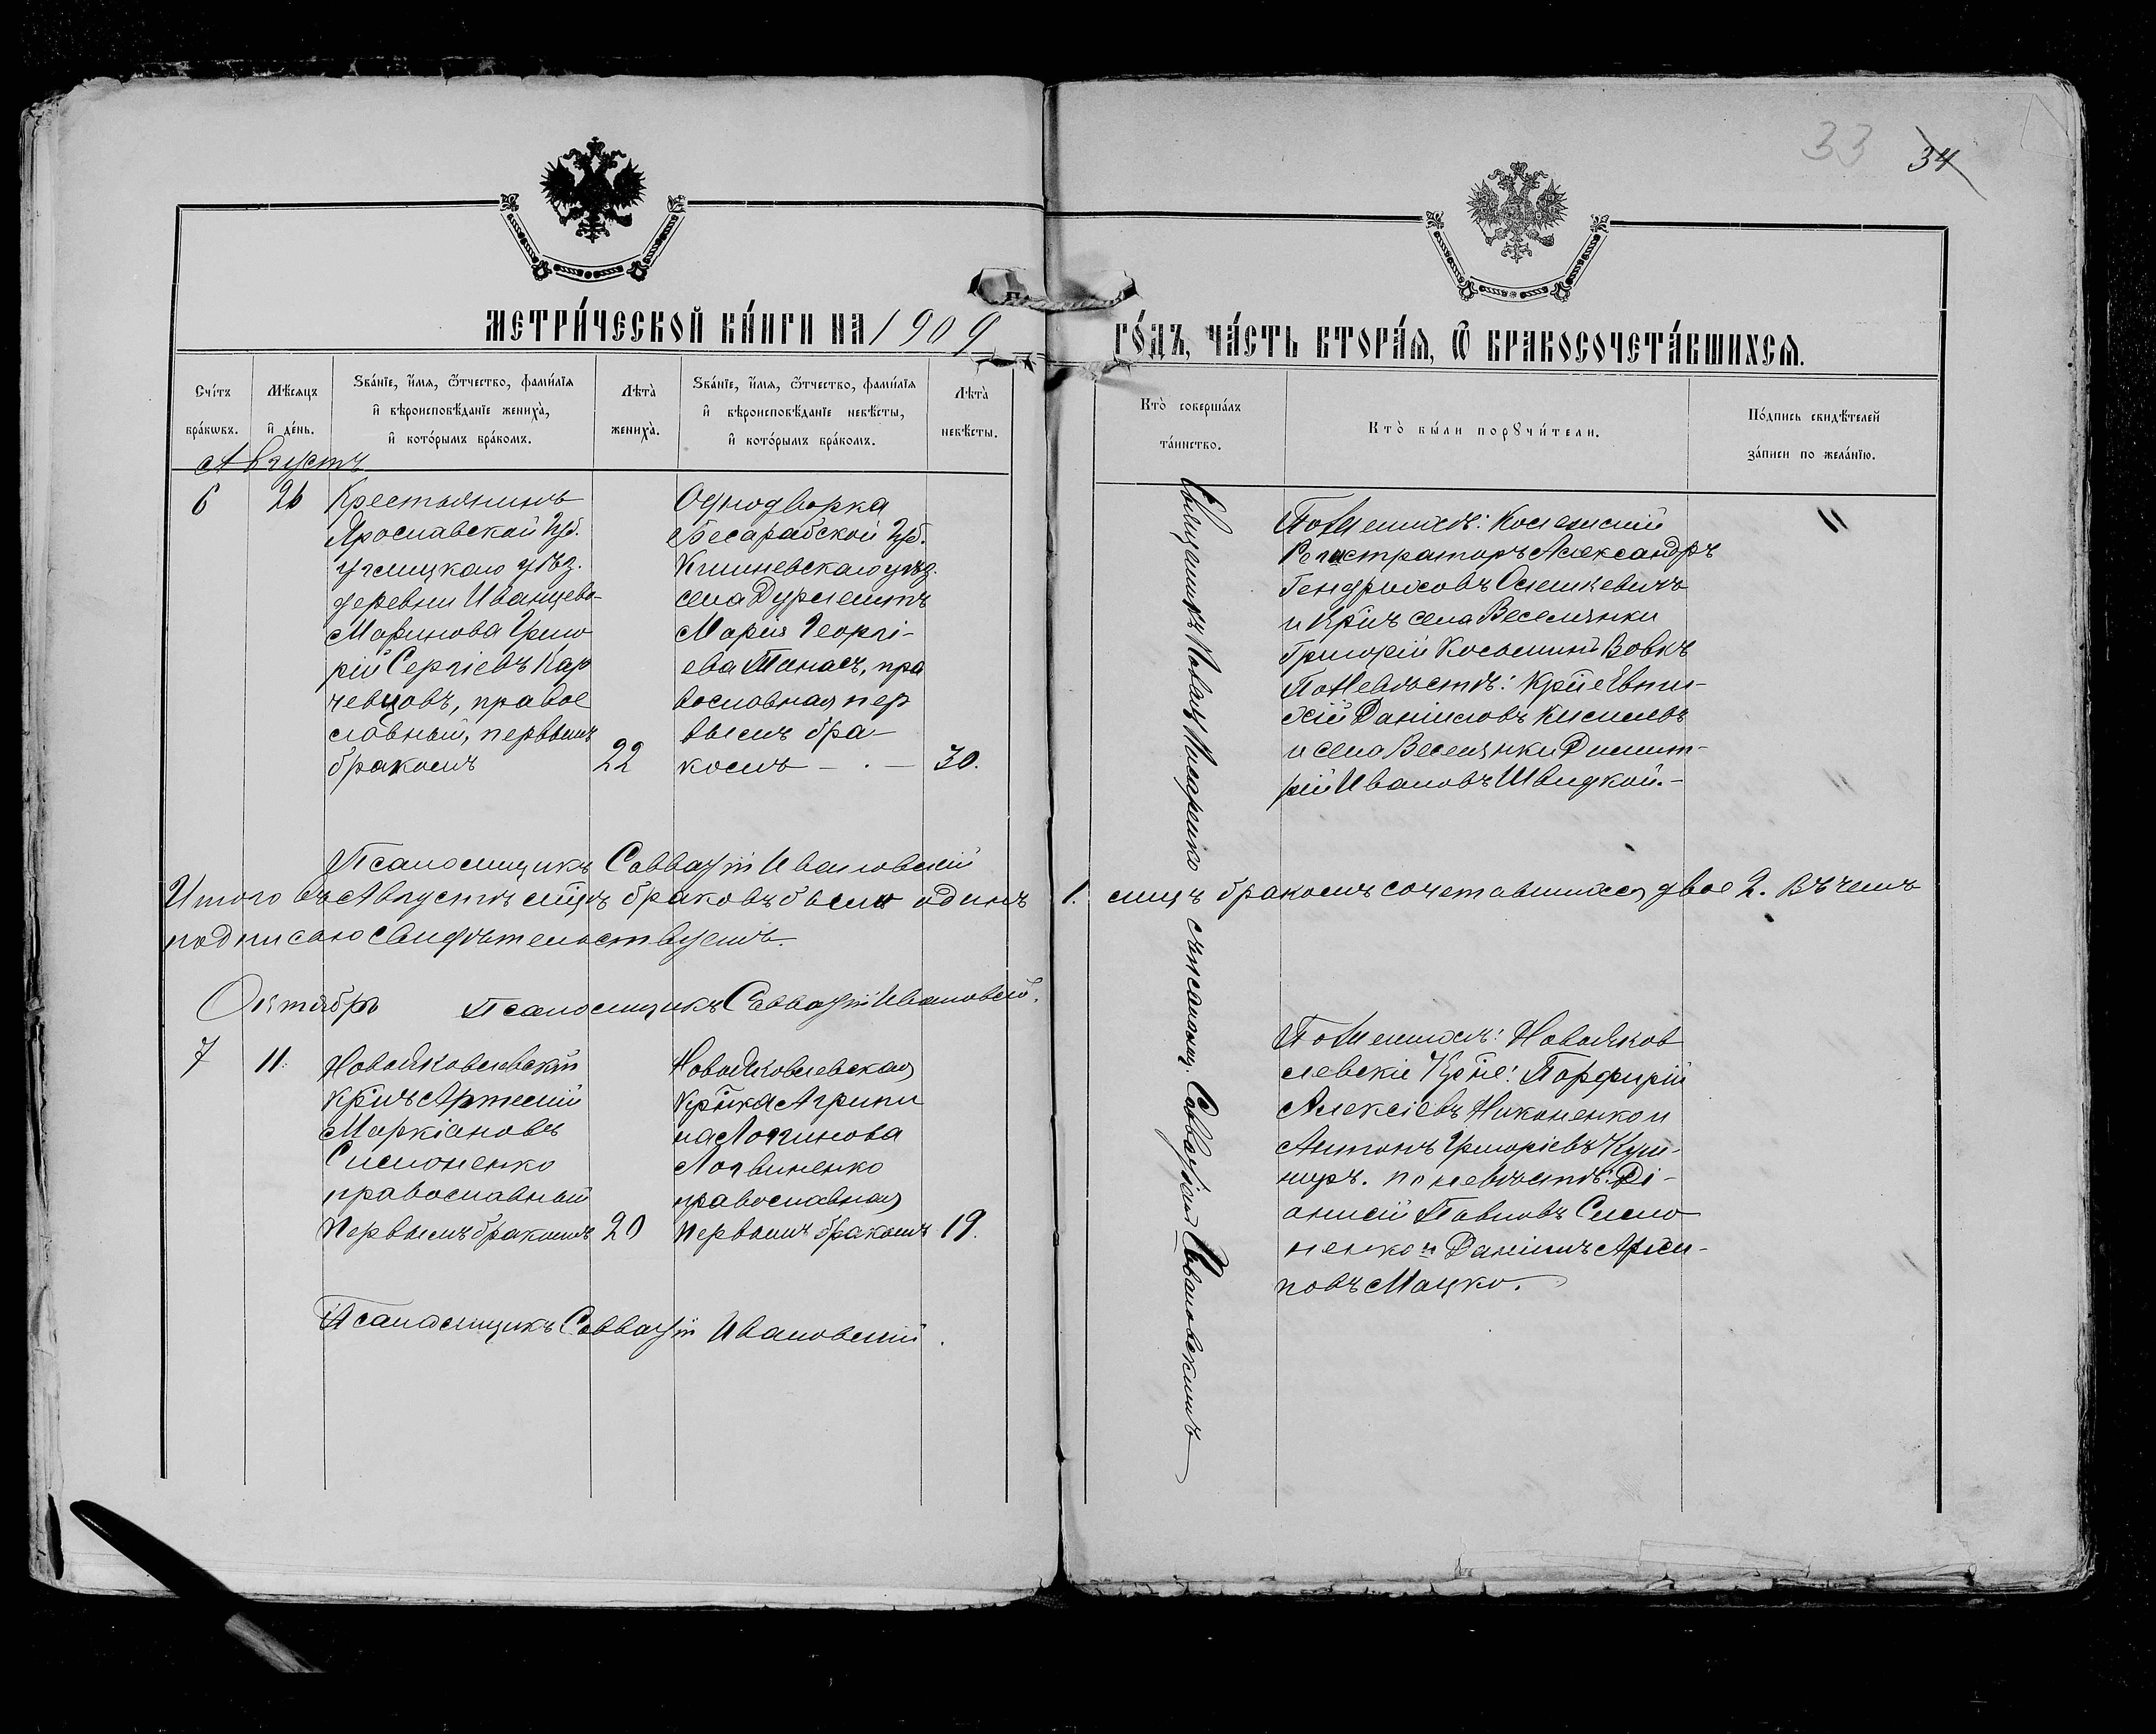 33 34
МЕТРИ́ЧЕСКОЙ КНИ́ГИ НА 1909
ГО́ДЪ, ЧА́СТЬ ВТОРА́Я, Ѽ БРАКОСОЧЕТА́ВШИХСЯ.
Сче́тъ бра́кѡвъ.
Мѣ́сяцъ и҆ де́нь.
Ѕва́нїе, и҆́мя, ѻ҆́тчество, фами́лїя
и҆ вѣроисповѣ́данїе жениха̀,
и҆ кото́рымъ бра́комъ.
Лѣта̀ жениха̀.
Ѕва́нїе, и҆́мя, ѻ҆́тчество, фами́лїя
и҆ вѣроисповѣ́данїе невѣ́сты,
и҆ кото́рымъ бра́комъ.
Лѣта̀ невѣ́сты.
Кто̀ соверша́лъ
та́инство.
Кто̀ бы́ли порꙋчи́тели.
По́дпись свидѣ́телей
за́писи по жела́нїю.
Августъ
6
26
Крестьянинъ
Ярославской Губ.
Угмицкаго уѣз.
деревни Иванцево-
Маринова Григо
рій Сергіевъ Кар
чевцовъ, правос
славный, первымъ
бракомъ
22
Однодворка
Бесарабской Губ.
Кишневскаго уѣз.
села Дурлештъ
Марія Георгі-
ева Танасъ, пра
вославная пер
вымъ бра-
комъ — . —
30.
Священникъ Исаренко съ псаломщ. Савватіемъ Ивановскимъ
По Женихѣ: Колежскій
Регистраторъ Александръ
Гендриховъ Олешкевичъ
и Крінъ села Веселянки
Григорій Косьминъ Вовкъ
По Невѣстѣ: Кріне Евти-
хій Даніиловъ Киселевъ
и села Веселянки Димит-
рій Ивановъ Швидкой.-
"
"
Псаломщикъ Савватій Ивановскій
Итого въ Августѣ мцѣ браковъ было одинъ 1. лицъ бракомъ сочетавшихся двое 2. Въ чемъ
подписаю свидѣтельствуемъ.
Псаломщикъ Савватій Ивановскій.
Октябрь
7
11.
НовоЯковлевскій
Крінъ Артемій
Маркіановъ
Симоненко
православный
первымъ бракомъ
20
НовоЯковлевская
Крінка Агрипи
на Логгинова
Логвиненко
православная
первымъ бракомъ
19.
По Женихѣ: НовоЯков
левскіе Крйне: Порфирій
Алексіевъ Никоненко и
Антонъ Григоріевъ Куш-
ниръ. по невѣстѣ: Ді-
онисій Павловъ Симо
ненко и Даніилъ Архи-
повъ Мацко.
Псаломщикъ Савватій Ивановскій.